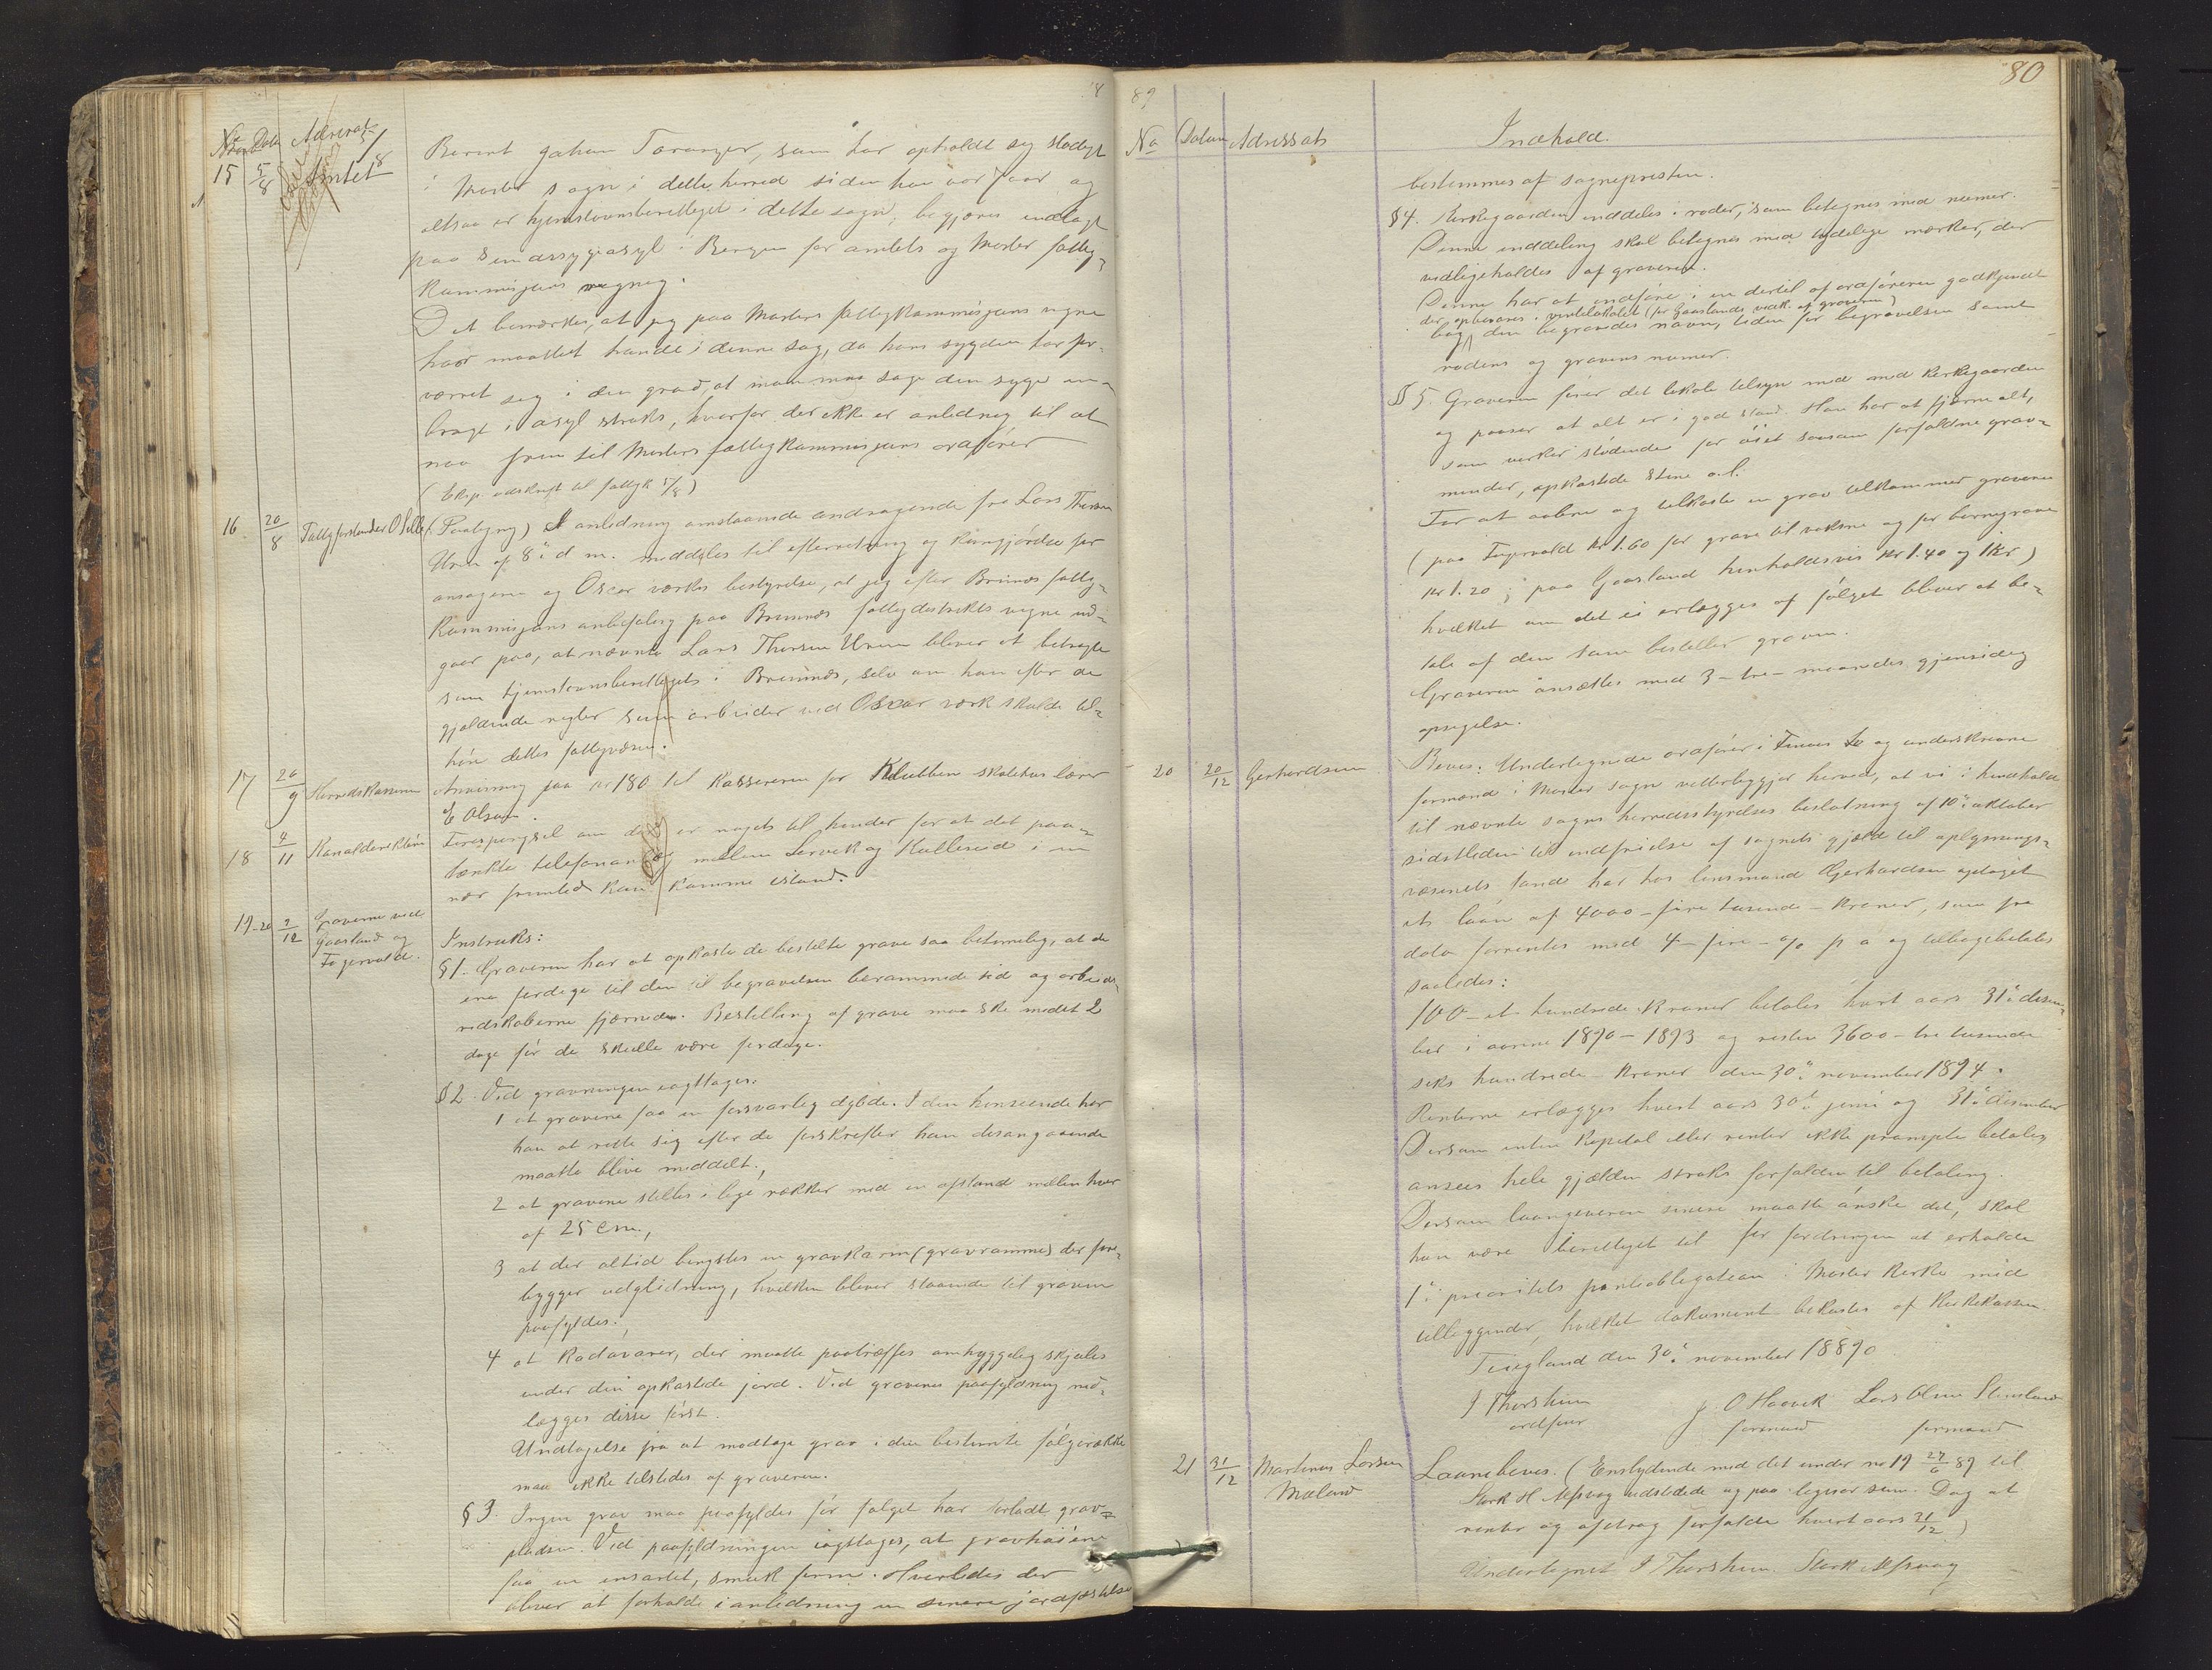 No Dato Adressat
15 5/8 Amtet
Berent Johan Taranger, som har opholdt sig stadigt
i Moster sogn i dette herred siden han var [?] aar og
altsaa er hjemstavnsberettiget i dette sogn, begjæres indlagt
paa sindssygeasyl i Bergen for amtets og Moster fattig-
kommissjons regning.
Det bemærkes, at jeg paa Mosters fattigkommissjons vegne
har maattet handle i denne sag, da hans sygdom har for-
værret seg i den grad, at man maa søge den syge an-
bragt i asyl straks, hvorfor der ikke er anledning til at
naa frem til Mosters fattigkommissjons ordfører
(Eksp. udskrift til fattigk. 5/8)
16 20/8 Fattigforstander O Lillef. (Paategng) I anledning omstaaende andragende fra Lars Thorsen
Uren af 8de d m. meddeles til efterretning og kungjørelse for
ansøgeren og Oscar værks bestyrelse, at jeg efter Bremnes fattig-
kommissjons anbefaling paa Bremnes fattigdistrikts vegne ud-
gaar paa, at nævnte Lars Thorsen Uren bliver at betragte
som hjemstavnsberettiget i Bremnes, selv om han efter de
gjældende regler som arbeider ved Oscar værk skulde til-
høre dettes fattigvæsen.
17 20/9 Herredskassereren Anvisning paa kr 180 til kassereren for Klubben skolehus lærer
E Olsen.
18 4/11 Kanaldirektören Forespørgsel om der er noget til hinder for at det paa-
tænkte telefonanlæg mellem Lervik og Kulleseid i en
nær fremtid kan komme istand.
19-20 2/12 Graverne ved
Gaasland og
Fagervold.
Instruks:
§1. Graveren har at opkaste de bestilte grave saa betimelig, at de
ere færdige til den til begravelsen berammede tid og arbeids-
redskaberne fjærnede. Bestilling af grave maa ske mindst 2
dage før de skulle være færdige.
§2. Ved gravningen iagttages:
1 at gravene faa en forsvarlig dybde. I den henseende har
han at rette sig efter de forskrifter ham desangaaende
maatte blive meddelt.,
2 at gravene stilles i lige rækker med en afstand mellem hver
af 25 Cm.,
3 at der altid benyttes en gravkarm (gravramme) der fore-
bygger udglidning, hvilken bliver staaende til graven
paafyldes.,
4 at Kadavarer, der maatte paatræffes omhyggelig skjules
under den opkastede jord. Ved gravenes paafyldning ned-
lægges disse først.
Undtagelse fra at modtage grav i den bestemte følgerække
maa ikke tilstedes af graveren.
§3. Ingen grav maa paafyldes før følget har forladt grav-
pladsen. Ved paafyldningen iagttages, at gravhøiene
faa en ensartet, smuk form. Hvorledes der
bliver at forholde i anledning en senere jordfæstelse
89 80
No Datum Adressat Indhold.
bestemmes af sognepresten.
§4. Kirkegaarden inddeles i roder, som betegnes med numer.
Denne inddeling skal betegnes med tydelige mærker, der
vedligeholdes af graveren.
Denne har at indføre i en dertil af ordføreren godkjendt
der opbevares i ventelokalet (for Gaaslands vedk. af graveren)
bog, den begravedes navn, tiden for begravelsen samt
rodens og gravens numer.
§5. Graveren fører det lokale tilsyn med med kirkegaarden
og passer at alt er i god stand. Han har at fjærne alt,
som virker stødende for øiet saasom forfaldne grav-
minder, opkastede stene o.l.
For at aabne og tilkaste en grav tilkommer graveren
(paa Fagervold kr 1.60 for grave til voksne og for barnegrave
kr 1.20; paa Gaasland henholdsvis kr 1.40 og 1 kr)
hvilket om det ei erlægges af følget bliver at be-
tale af den som bestiller graven.
Graveren ansættes med 3 - tre - maaneders gjensidig
opsigelse.
20 20/12 Gerhardsen Bevis: Undertegnede ordfører i Finaas to og underskrevne
formænd i Moster sogn vitterliggjør herved, at vi i henhold
til nævnte sogns herredsstyrelses beslutning af 10de oktober
sidstleden til indfrielse af sognets gjæld til oplysnings-
væsenets fond har hos lensmand Gerhardsen optaget
et laan af 4000 - fire tusinde - kroner, som fra
dato forrentes med 4 - fire - % p a og tilbagebetales
saaledes:
100 - et hundrede kroner betales hvert aars 31te desem-
ber i aarene 1890 - 1893 og resten 3600 - tre tusinde
seks hundrede - kroner den 30te november 1894.
Renterne erlægges hvert aars 30te juni og 31te desember
Dersom enten kapital eller renter ikke prompte betales
ansees hele gjælden straks forfalden til betaling.
Dersom laangiveren senere maatte ønske det, skal
han være berettiget til for fordringen at erholde
1ste prioritets panteobligation i Moster kirke med
tilliggender, hvilket dokument bekostes af kirkekassen.
Finaas den 30te november 1889
I Thorshun J. O Haavik Lars Olsen Steinsland
ordfører formand formand
21 31/12 Martinus Larsen
Mæland
Laanebevis. (Enslydende med det under no 19 27/6 89 til
Stark H Mosevog udstedte og paa ligesaa sum. Dog at
renter og afdrag forfalde hvert aars 31/12)
Undertegnet I Thorshun Stark Mosevog